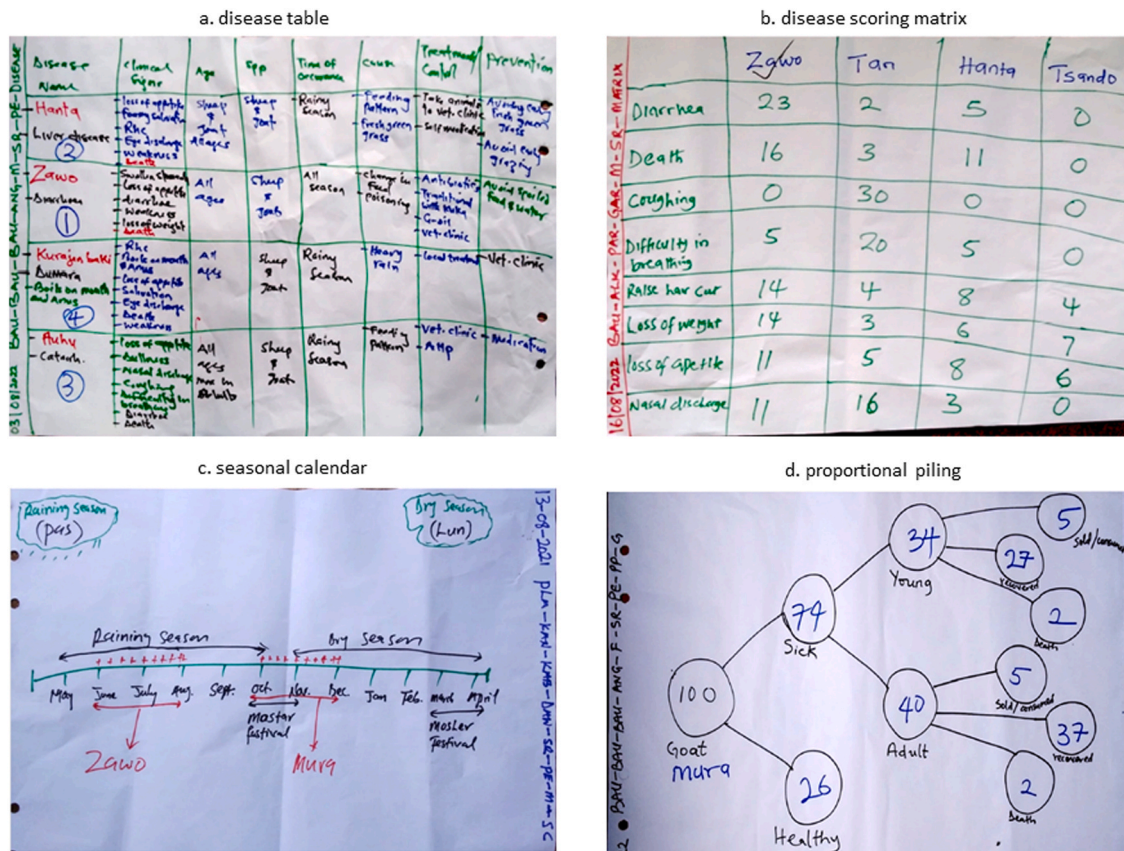 a. disease table
03/08/2022 BAU-BAU-BAU-ANG-M-SR-PE-DISEASE
Disease Name
Clinical Signs
Age
Spp
Time of
Cause
Treatment/ Control
Prevention
- Hanta
- Liver disease
②
- loss of appetite
- salivation
- Rhc
- Eye discharge
- weakness
- Death
- Sheep
&
Goat
All ages
- Sheep
&
Goat
- Rainy
season
- Feeding
pattern
- Fresh green
grass
- Take animals
to vet. clinic
- Self medication
- Avoid early
fresh green
grass
- Avoid early
grazing
- Zawo
- Diarrhoea
①
- Swollen
- Loss of appetite
- diarrhoea
- Weakness
- loss of weight
- Death
- All
ages
- Sheep
&
Goats
- All
season
- change in
Feed
poisoning
- Antibiotics
- Traditional
with
- G-oil
- vet-clinic
- Avoid spoiled
food & water
- Kurajen baki
- Buttara
- Boils on mouth
and Anus
④
- Rhc
- on mouth
& Anus
- Loss of appetite
- Salivation
- Eye discharge
- Death
- weakness
- All
ages
Sheep
&
Goat
- Rainy
Season
- Heavy
rain
- Local treatment
- Vet. clinic
- Catarrh.
③
- loss of appetite
- Dullness
- Nasal discharge
- Coughing
- Difficulty in
breathing
- Diarrhoea
- Death
- All
ages
more in
Sheep
&
Goat
- Rainy
Season
- Feeding
pattern
- Vet. clinic
- Medication
b. disease scoring matrix
16/08/2022 BAU-ALK-PAR-GAR-M-SR-MATRIX
Zawo Tan Hanta Tsando
Diarrhea 23 2 5 0
Death 16 3 11 0
Coughing 0 30 0 0
Difficulty in
breathing 5 20 5 0
Raise hair cut 14 4 8 4
Loss of weight 14 3 6 7
loss of apetite 11 5 8 6
Nasal discharge 11 16 3 0
c. seasonal calendar
Raining season
(pas)
Dry season
(Lun)
13-08-2021 PLA-KAN-KAB-DAN-SR-PE-M-SC
Raining season
Dry season
May June July Aug. Sept. Oct. Nov. Dec. Jan Feb. march April
mastar
festival
Mosler
festival
Zawo
Mura
d. proportional piling
BAU-BAU-BAU-ANG-F-SR-PE-PP-G
100
Goat
mura
74
Sick
26
Healthy
34
Young
40
Adult
5
sold/consumed
27
recovered
2
Death
5
sold/consumed
37
recovered
2
Death